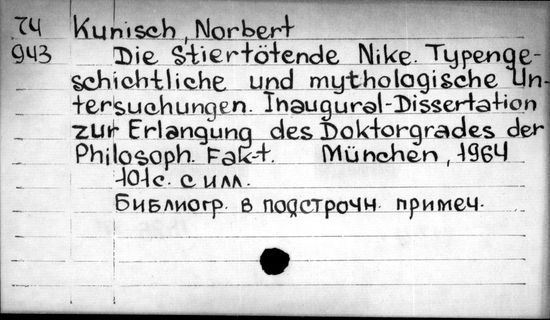 74 Kunisch, Norbert
943 Die Stiertötende Nike. Typenge-
schichtliche und mythologische Un-
tersuchungen. Inaugural-Dissertation
zur Erlangung des Doktorgrades der
Philosoph. Fak-t. München, 1964
101с. с илл.
Библиогр. в подстрочн. примеч.